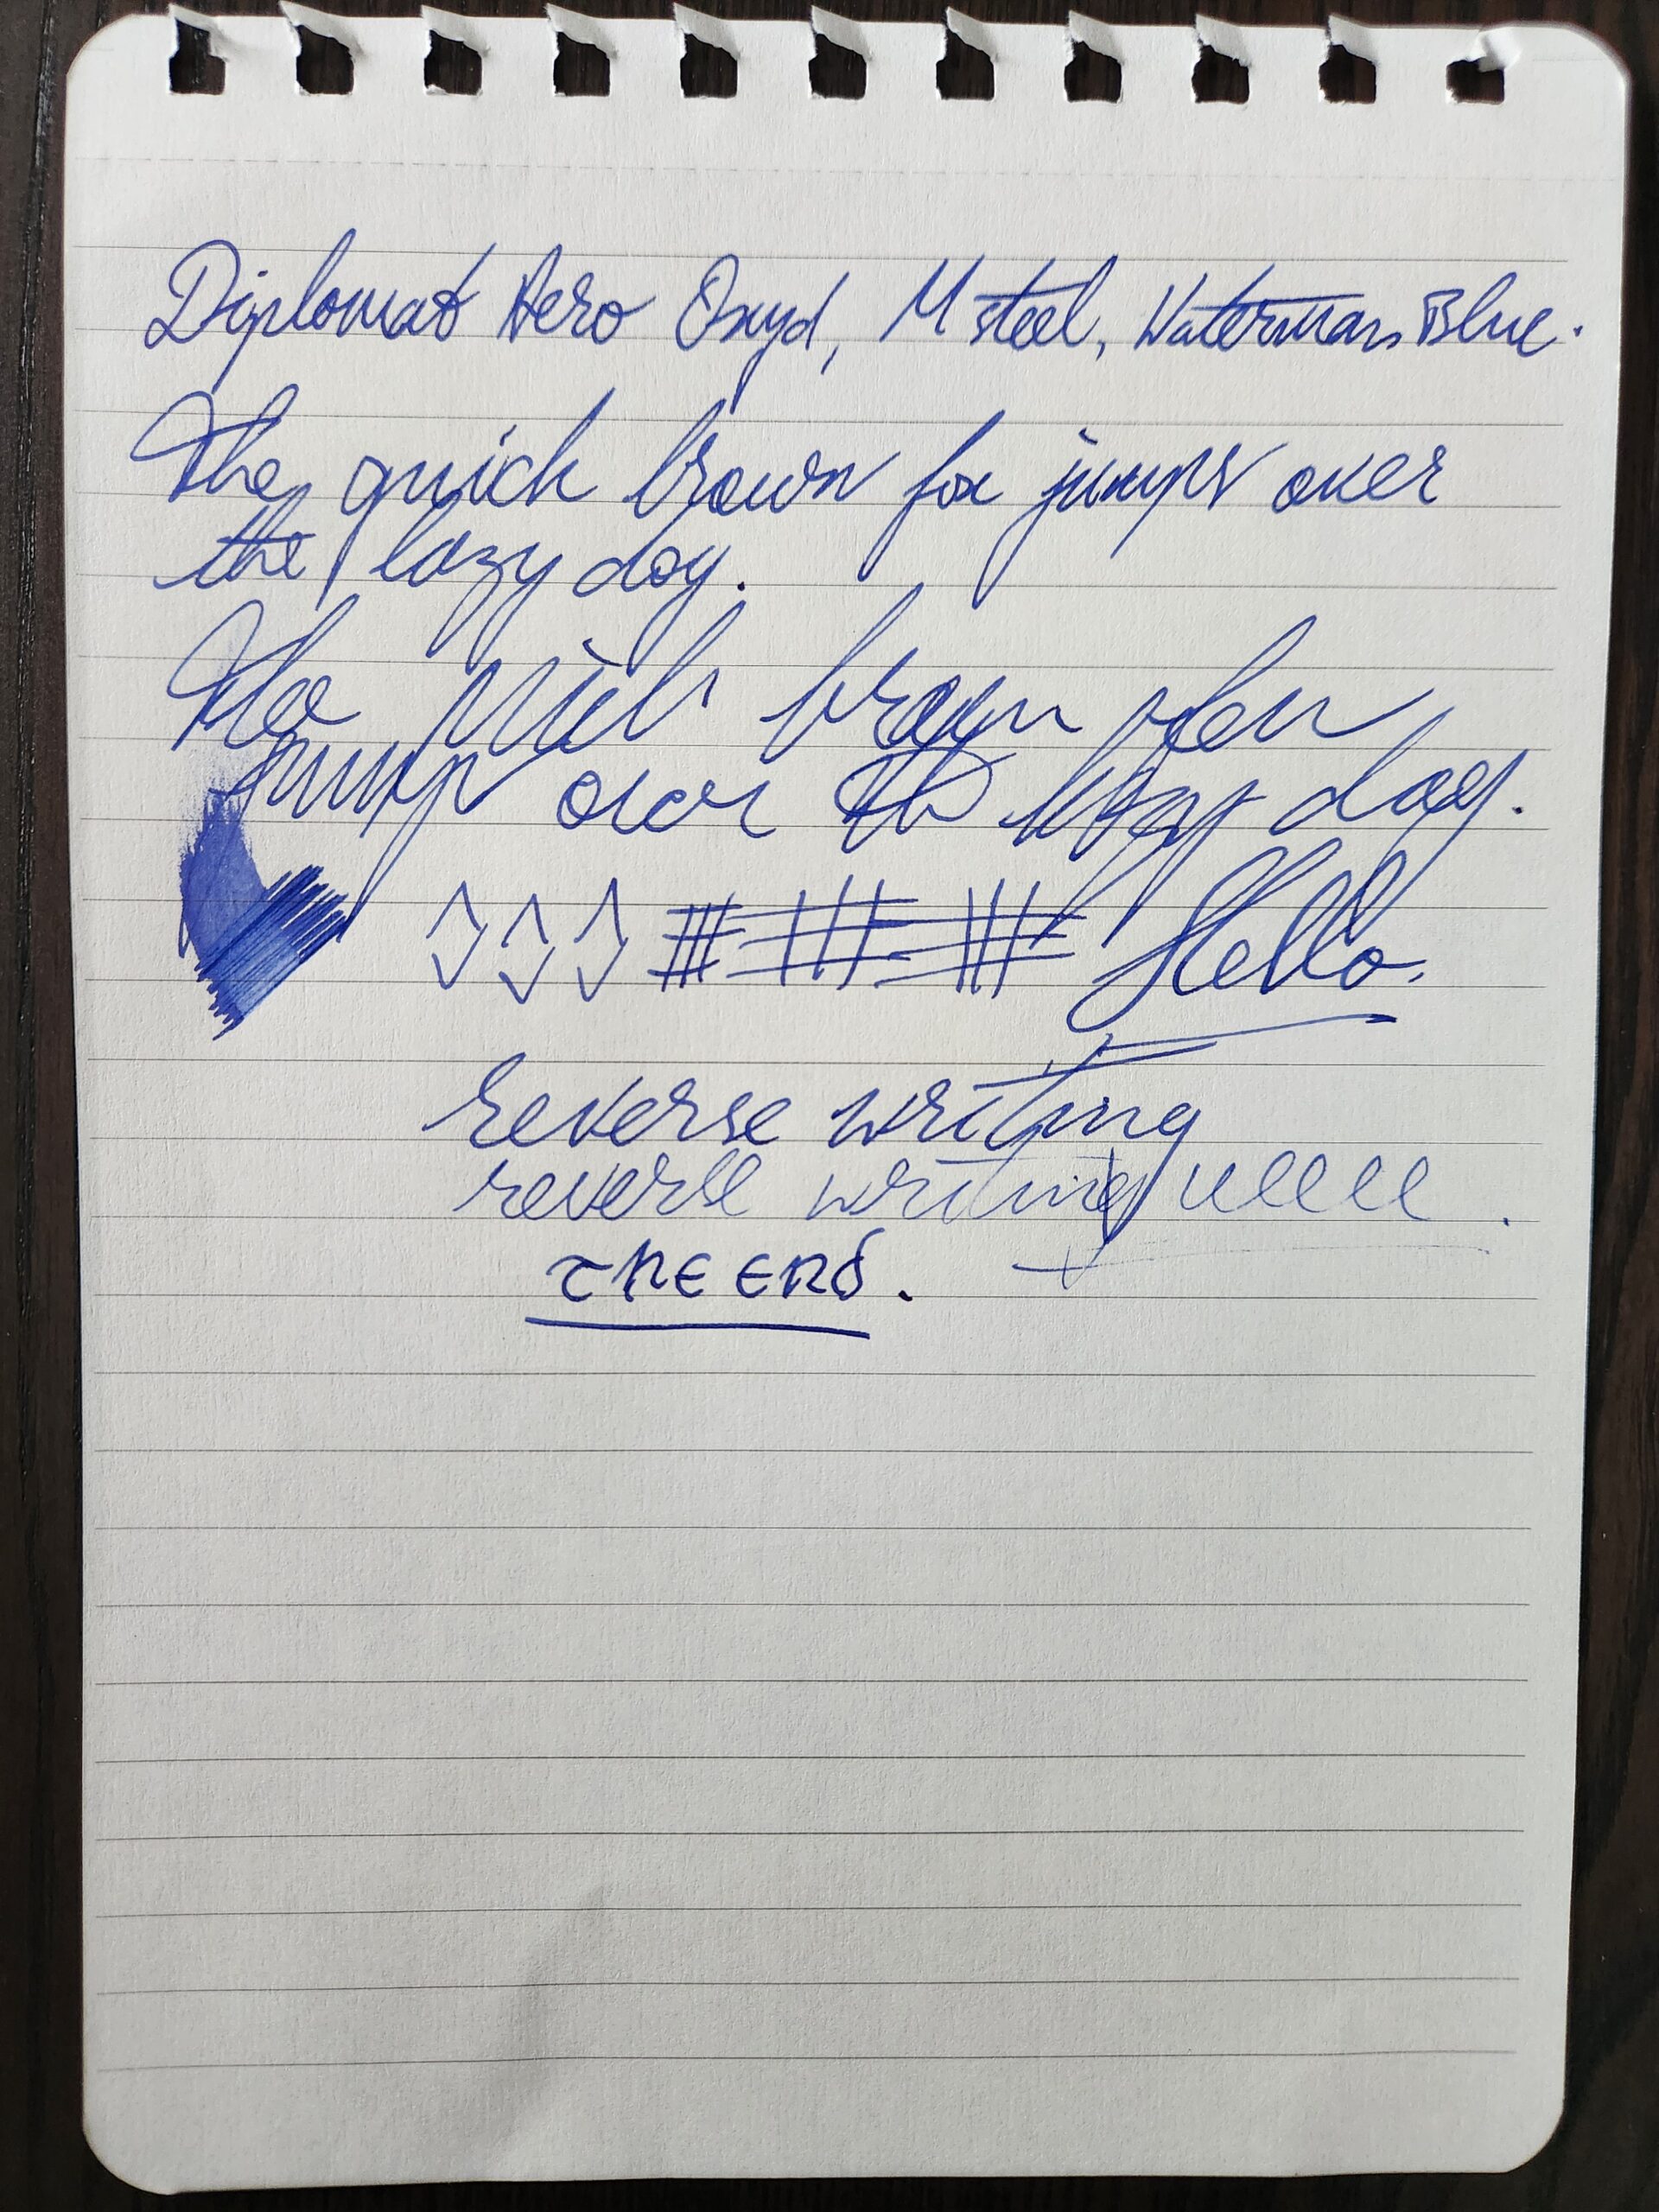 Diplomat Aero Oxyd, M steel, Waterman Blue.
The quick brown fox jumps over
the lazy dog.
The quick brown
jumps over the lazy dog.
Hello.
reverse writing
reverse writing
THE END.